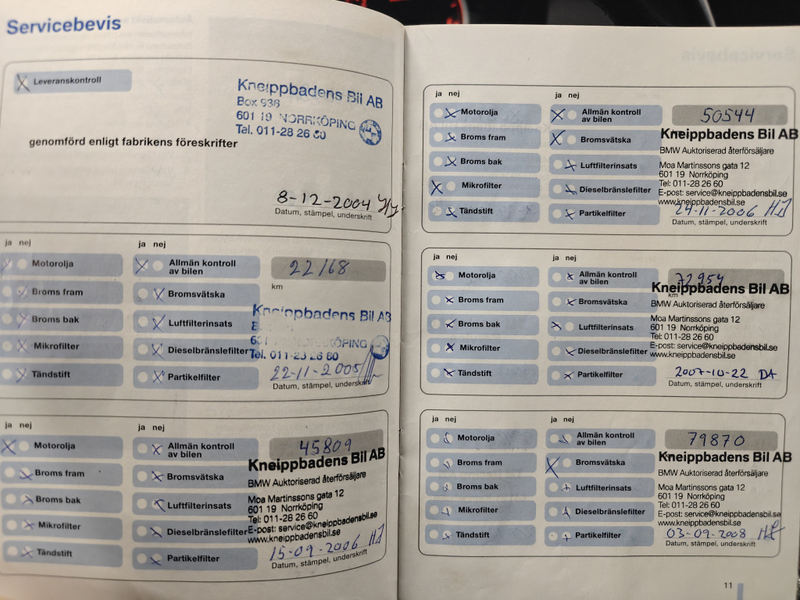 Servicebevis
Leveranskontroll
Kneippbadens Bil AB
Box 936
601 19 NORRKÖPING
Tel. 011-28 26 60
genomförd enligt fabrikens föreskrifter
8-12-2004
Datum, stämpel, underskrift
ja nej ja nej
Motorolja Allmän kontroll av bilen 22168
km
Broms fram Bromsvätska
Kneippbadens Bil AB
Broms bak Luftfilterinsats
NORRKÖPING
Mikrofilter Dieselbränslefilter
Tel. 011-28 26 60
Tändstift Partikelfilter
22-11-2005
Datum, stämpel, underskrift
ja nej ja nej
Motorolja Allmän kontroll av bilen 45809
Kneippbadens Bil AB
Broms fram Bromsvätska
BMW Auktoriserad återförsäljare
Broms bak Luftfilterinsats
Moa Martinssons gata 12
601 19 Norrköping
Mikrofilter Dieselbränslefilter
Tel: 011-28 26 60
E-post: service@kneippbadensbil.se
www.kneippbadensbil.se
Tändstift Partikelfilter
15-09-2006 HJ
Datum, stämpel, underskrift
ja nej ja nej
Motorolja Allmän kontroll av bilen 50544
Kneippbadens Bil AB
Broms fram Bromsvätska
BMW Auktoriserad återförsäljare
Broms bak Luftfilterinsats
Moa Martinssons gata 12
601 19 Norrköping
Mikrofilter Dieselbränslefilter
Tel: 011-28 26 60
E-post: service@kneippbadensbil.se
www.kneippbadensbil.se
Tändstift Partikelfilter
24-11-2006 HJ
Datum, stämpel, underskrift
ja nej ja nej
Motorolja Allmän kontroll av bilen 72954
km
Kneippbadens Bil AB
Broms fram Bromsvätska
BMW Auktoriserad återförsäljare
Broms bak Luftfilterinsats
Moa Martinssons gata 12
601 19 Norrköping
Mikrofilter Dieselbränslefilter
Tel: 011-28 26 60
E-post: service@kneippbadensbil.se
www.kneippbadensbil.se
Tändstift Partikelfilter
2007-10-22 DA
Datum, stämpel, underskrift
ja nej ja nej
Motorolja Allmän kontroll av bilen 79870
Kneippbadens Bil AB
Broms fram Bromsvätska
BMW Auktoriserad återförsäljare
Broms bak Luftfilterinsats
Moa Martinssons gata 12
601 19 Norrköping
Mikrofilter Dieselbränslefilter
Tel: 011-28 26 60
E-post: service@kneippbadensbil.se
www.kneippbadensbil.se
Tändstift Partikelfilter
03-09-2008
Datum, stämpel, underskrift
11